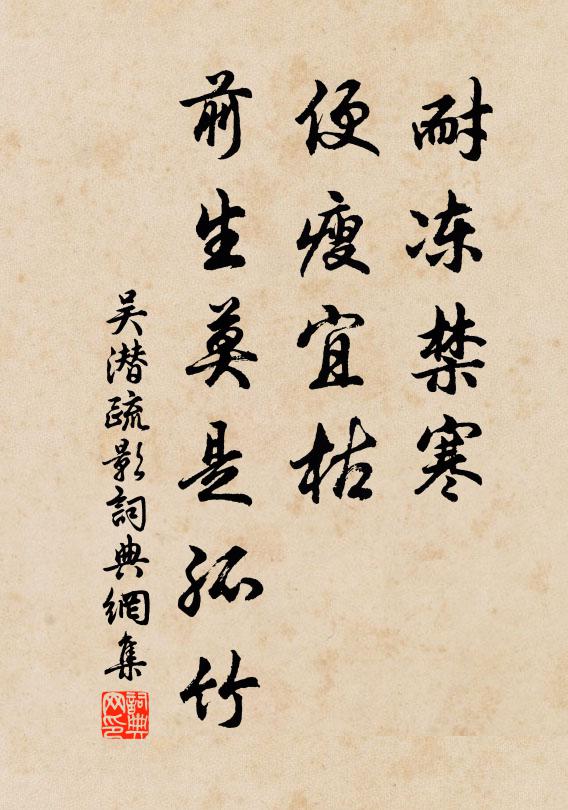 耐冻禁寒
便瘦宜枯
前生莫是孤竹
吴潜疏影詞典網集
詞典网印